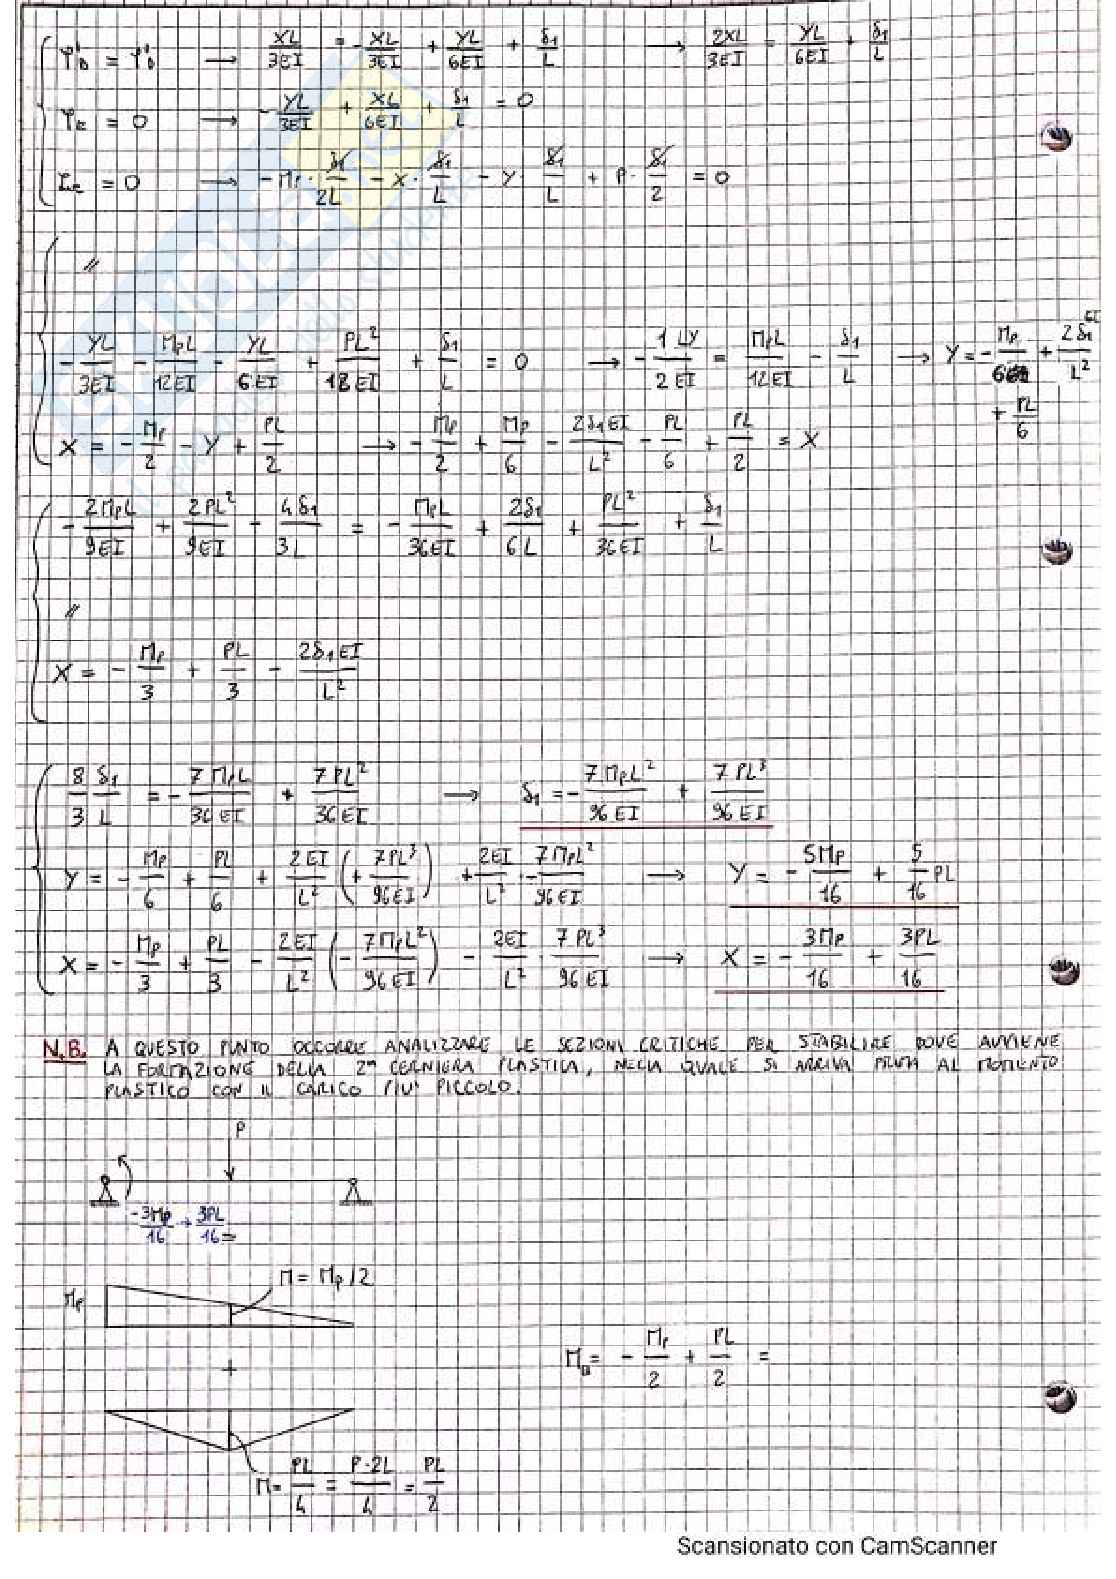 φ'_B = φ'_B → XL/3EI = - XL/3EI + YL/6EI + δ1/L → 2XL/3EI = YL/6EI + δ1/L
φ_C = 0 → - YL/3EI + XL/6EI + δ1/L = 0
= 0 → - Mp · δ1/2L - X · δ1/L - Y · δ1/L + P · δ1/2 = 0
//
- YL/3EI - MpL/12EI - YL/6EI + PL²/18EI + δ1/L = 0 → - 1 LY/2EI = MpL/12EI - δ1/L → Y = - Mp/6 + 2δ1EI/L²
+ PL/6
X = - Mp/2 - Y + PL/2 → - Mp/2 + Mp/6 - 2δ1EI/L² - PL/6 + PL/2 = X
- 2MpL/9EI + 2PL²/9EI - 4δ1/3L = - MpL/36EI + 2δ1/6L + PL²/36EI + δ1/L
//
X = - Mp/3 + PL/3 - 2δ1EI/L²
8/3 δ1/L = - 7MpL/36EI + 7PL²/36EI → δ1 = - 7MpL²/96EI + 7PL³/96EI
Y = - Mp/6 + PL/6 + 2EI/L² (+ 7PL³/96EI) + 2EI/L² · - 7MpL²/96EI → Y = - 5Mp/16 + 5/16 PL
X = - Mp/3 + PL/3 - 2EI/L² (- 7MpL²/96EI) - 2EI/L² · 7PL³/96EI → X = - 3Mp/16 + 3PL/16
N.B. A QUESTO PUNTO OCCORRE ANALIZZARE LE SEZIONI CRITICHE PER STABILIRE DOVE AVVIENE
LA FORMAZIONE DELLA 2ª CERNIERA PLASTICA, NELLA QUALE SI ARRIVA PRIMA AL MOMENTO
PLASTICO CON IL CARICO PIU' PICCOLO.
P
-3Mp/16 + 3PL/16 =
M = Mp/2
Mp
M_B = - Mp/2 + PL/2 =
+
M = PL/4 = P·2L/4 = PL/2
Scansionato con CamScanner